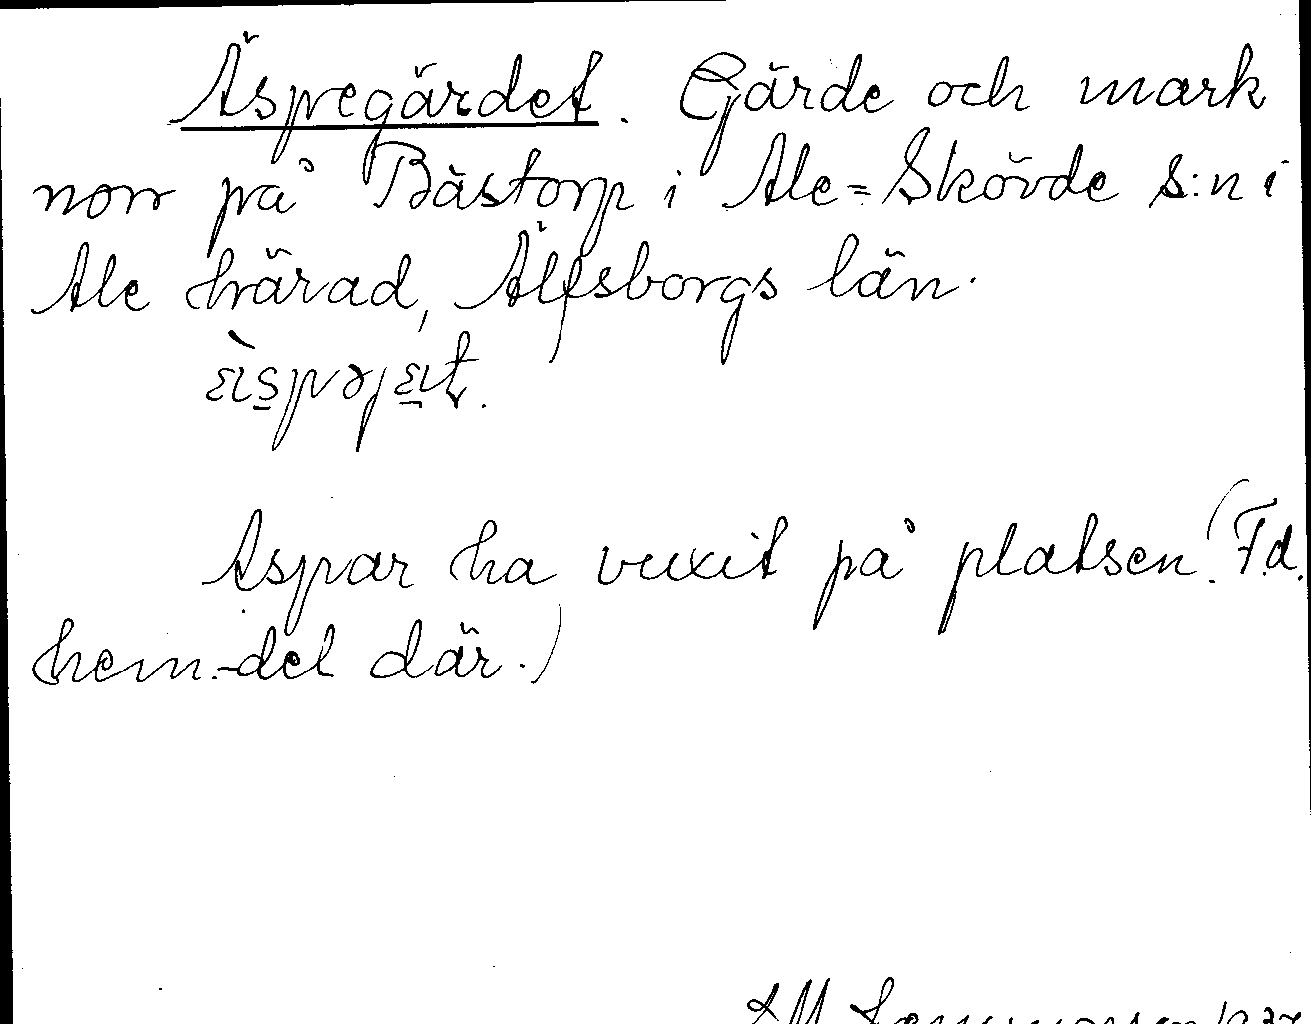 Äspegärdet. Gärde och mark
norr på Bästorp i Ale=Skövde s:n i
Ale härad, Älfsborgs län.
Aspar ha vuxit på platsen. (F.d.
hem.-del där.)